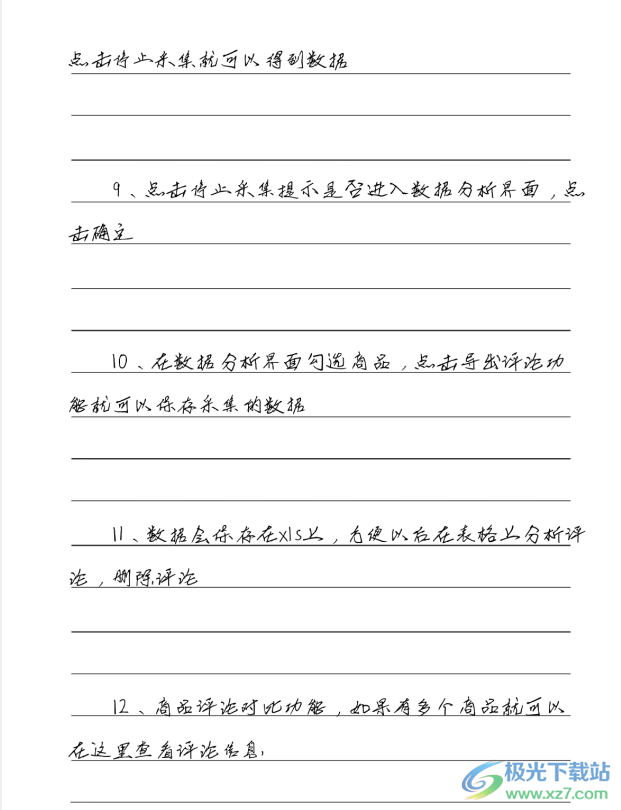 点击停止采集就可以得到数据
9、点击停止采集提示是否进入数据分析界面，点
击确定
10、在数据分析界面勾选商品，点击导出评论功
能就可以保存采集的数据
11、数据会保存在xls上，方便以后在表格上分析评
论，删除评论
12、商品评论对比功能，如果有多个商品就可以
在这里查看评论信息.
极光下载站
www.xz7.com